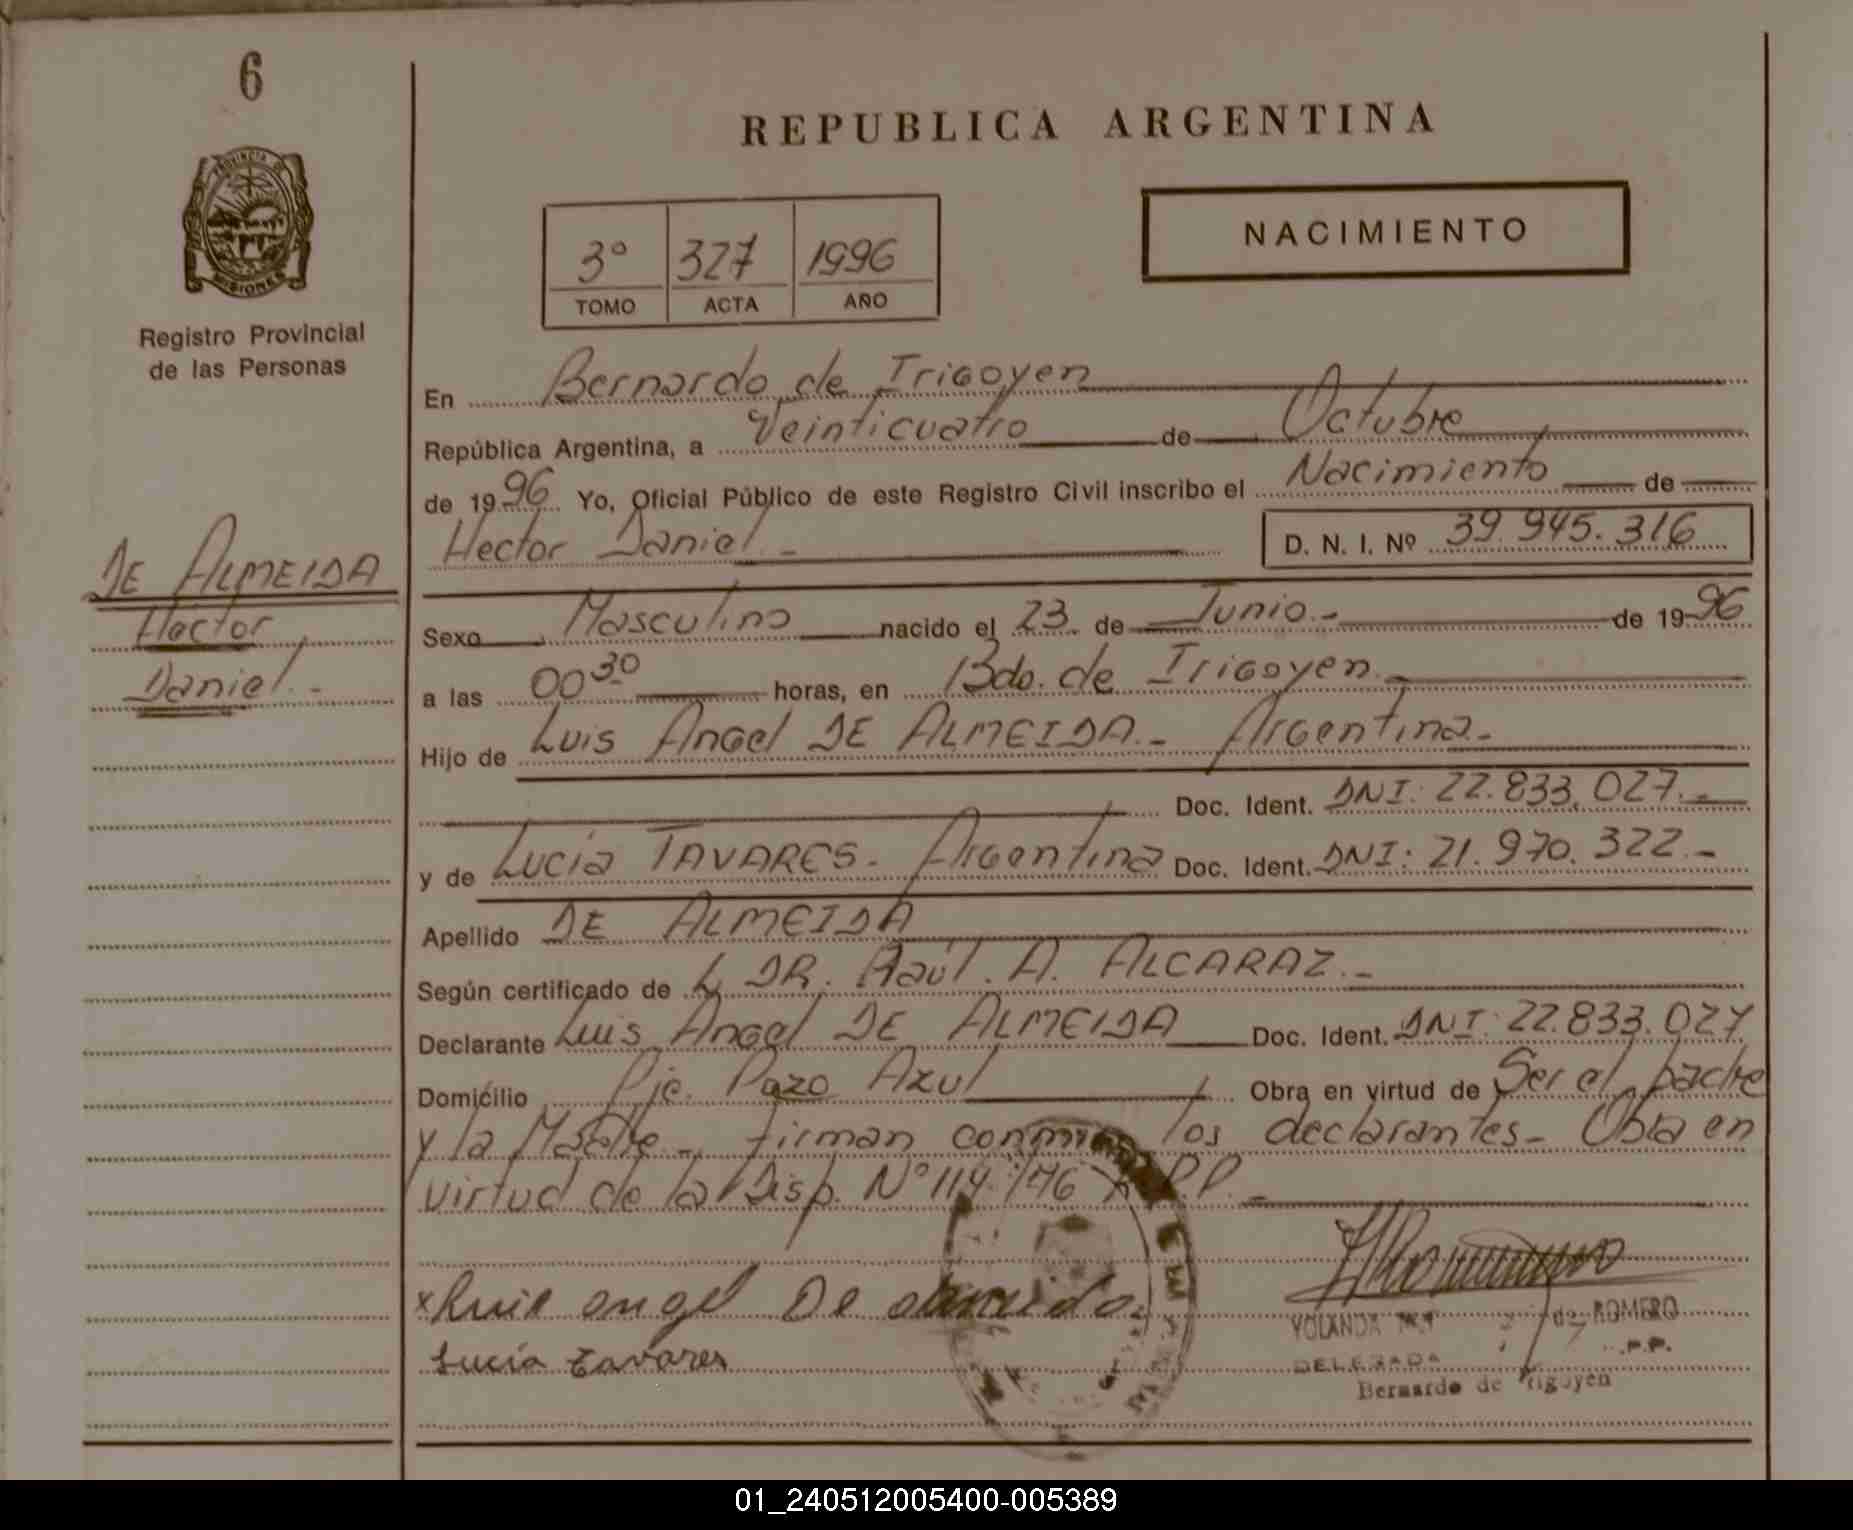 6
REPUBLICA ARGENTINA
PROVINCIA DE
MISIONES
Registro Provincial
de las Personas
3º 327 1996
TOMO ACTA AÑO
NACIMIENTO
En Bernardo de Irigoyen
República Argentina, a Veinticuatro de Octubre
de 1996 Yo, Oficial Público de este Registro Civil inscribo el Nacimiento de
Hector Daniel.- D. N. I. Nº 39.945.316
DE ALMEIDA
Hector
Daniel.-
Sexo Masculino nacido el 23 de Junio.- de 1996
a las 00 30 horas, en Bdo. de Irigoyen.-
Hijo de Luis Angel DE ALMEIDA.- Argentina.-
Doc. Ident. DNI: 22.833.027.-
y de Lucia TAVARES.- Argentina Doc. Ident. DNI: 21.970.322.-
Apellido DE ALMEIDA
Según certificado de L DR. Raúl. A. ALCARAZ.-
Declarante Luis Angel DE ALMEIDA Doc. Ident. DNI: 22.833.027
Domicilio Pje. Pozo Azul Obra en virtud de Ser el padre
y la Madre.- Firman conmigo los declarantes- Obra en
virtud de la Disp. Nº 114/76 R.P.P.-
x Luis angel De almeida
Lucía tavares
YOLANDA de ROMERO
DELEGADA P.P.
Bernardo de Irigoyen
01_240512005400-005389